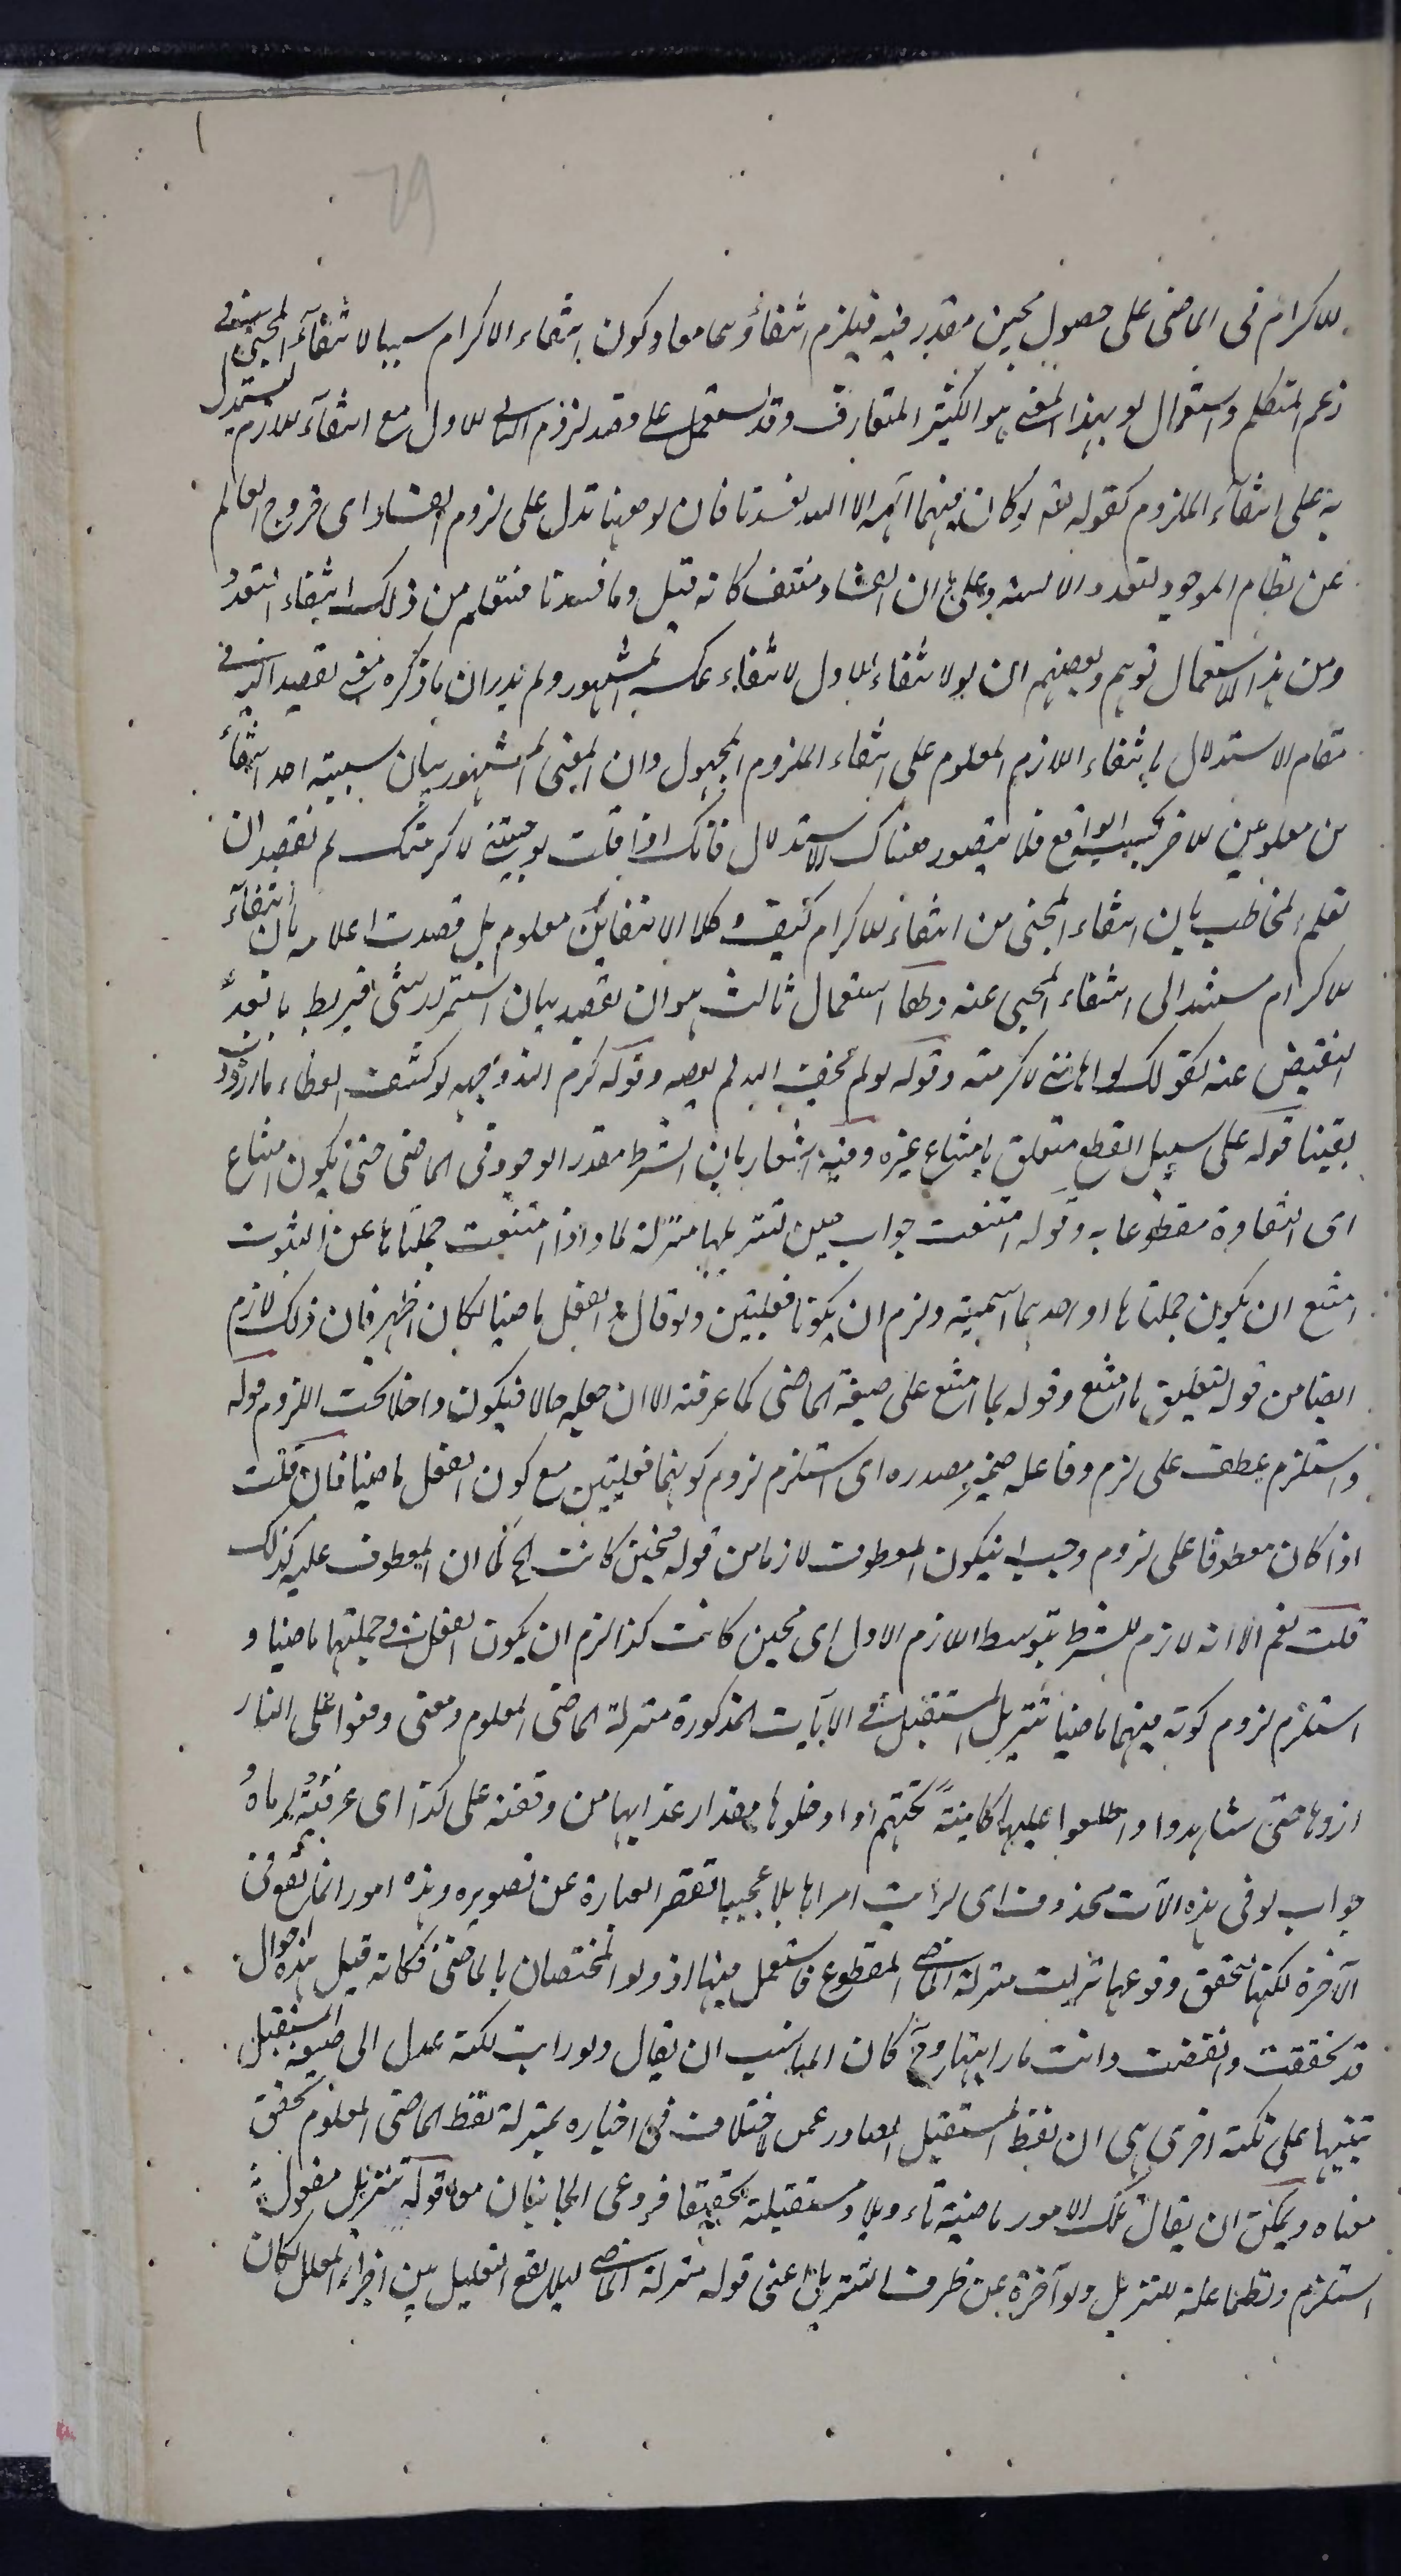 ٦٩
للاكرام فى الماضى على حصول مجئ مقدر فيه فيلزم انتفاؤهما معا وكون انتفاء الاكرام سببا لانتفاء المجئ فى
زعم المتكلم واستعمال لو بهذا المعنى هو الكثير المتعارف وقد يستعمل على قصد لزوم الثانى للاول مع انتفاء اللازم ليستدل
به على انتفاء الملزوم كقوله تعه لو كان فيهما آلهة الا الله لفسدتا فان لو ههنا تدل على لزوم الفساد اى خروج العالم
عن نظام الموجود لتعدد الآلهة وعلى ان الفساد منتف كانه قيل وما فسدتا فتعلم من ذلك انتفاء التعدد
ومن هذا الاستعمال توهم بعضهم ان لو لانتفاء الاول لانتفاء عكس المشهور ولم يدر ان ما ذكره معنى يقصد اليه فى
مقام الاستدلال بانتفاء اللازم المعلوم على انتفاء الملزوم المجهول وان المعنى المشهور بيان سببية احد انتفاء
ين معلومين للاخر بحسب الواقع فلا يتصور هناك الاستدلال فانك اذا قلت لو جئتنى لاكرمتك لم تقصد ان
تعلم المخاطب بان انتفاء المجئ من انتفاء الاكرام كيف وكلا الانتفائين معلوم بل قصدت اعلامه بان انتفاء
الاكرام مستند الى انتفاء المجئ عنه ولها استعمال ثالث هو ان يقصد بيان استمرار شئ فيربط بابعد
النقيض عنه كقولك لو اهاننى لاكرمته وقوله لو لم يخف الله لم يعصه وقوله كرم الله وجهه لو كشف الغطاء ما ازددت
يقينا قوله على سبيل القطع متعلق بامتناع غيره وفيه اشعار بان الشرط مقدر الوجود فى الماضى حتى يكون امتناع
اى انتفاؤه مقطوعا به وقوله امتنعت جواب حين لتنزيلها منزلة لما واذا امتنعت جملتاها عن الثبوت
امتنع ان يكون جملتاها او احدهما اسمية ولزم ان يكونا فعليتين ولو قال والفعل ماضيا لكان اظهر فان ذلك لازم
ايضا من قوله تعليق ما امتنع وقوله بما امتنع على صيغة الماضى كما عرفته الا ان جعله حالا فيكون داخلا تحت اللزوم قوله
واستلزم عطف على لزم وفاعله ضمير مصدره اى استلزم لزوم كونهما فعليتين مع كون الفعل ماضيا فان قلت
اذا كان معطوفا على لزوم وجب ان يكون المعطوف لازما من قوله فحين كانت الخ كما ان المعطوف عليه كذلك
قلت نعم الا انه لازم للشرط بتوسط اللازم الاول اى فحين كانت كذا لزم ان يكون الفعل فى جملتيها ماضيا و
استلزم لزوم كونه فيهما ماضيا تنزيل المستقبل فى الآيات المذكورة منزلة الماضى المعلوم ومعنى وقفوا على النار
اروها حتى شاهدوا واطلعوا عليها كائنة تحتهم او ادخلوها مقدار عذابها من وقفته على كذا اى عرفته اياه
جواب لو فى هذه الآيات محذوف اى لرأيت امرا هائلا عجيبا تقصر العبارة عن تصويره وهذه امور انما تقع فى
الآخرة لكنها لتحقق وقوعها نزلت منزلة الماضى المقطوع فاستعمل فيها اذ ولو المختصان بالماضى فكانه قيل هذه احوال
قد تحققت وانقضت وانت ما رايتها وح كان المناسب ان يقال ولو رايت لكنه عدل الى صيغة المستقبل
تنبيها على نكتة اخرى هى ان لفظ المستقبل الصادر عمن لا خلاف فى اخباره بمنزلة لفظ الماضى المعلوم تحقق
معناه ويمكن ان يقال تلك الامور ماضية تاويلا ومستقبلة تحقيقا فروعى الجانبان معا قوله تنزيل مفعول
استلزم ونظما علة للتنزيل ولو آخره عن ظرف التنزيل اعنى قوله منزلة الماضى لئلا يقع التعليل بين اجزاء المعلل لكان